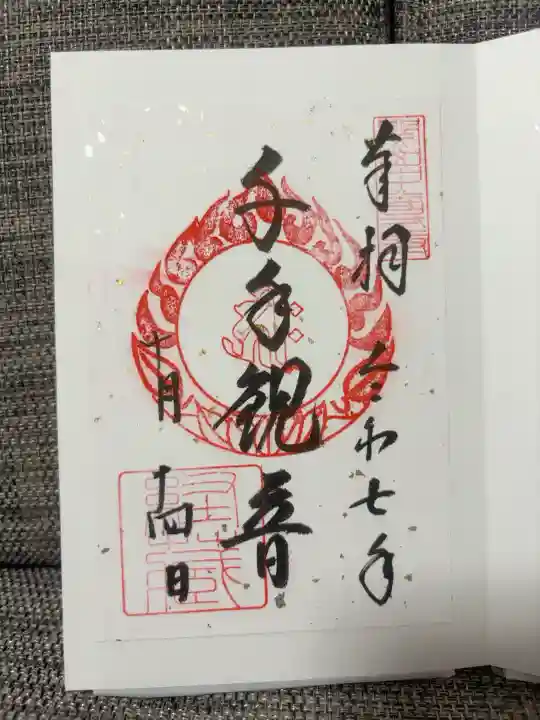 奉拝 令和七年
千手観音
十月十四日